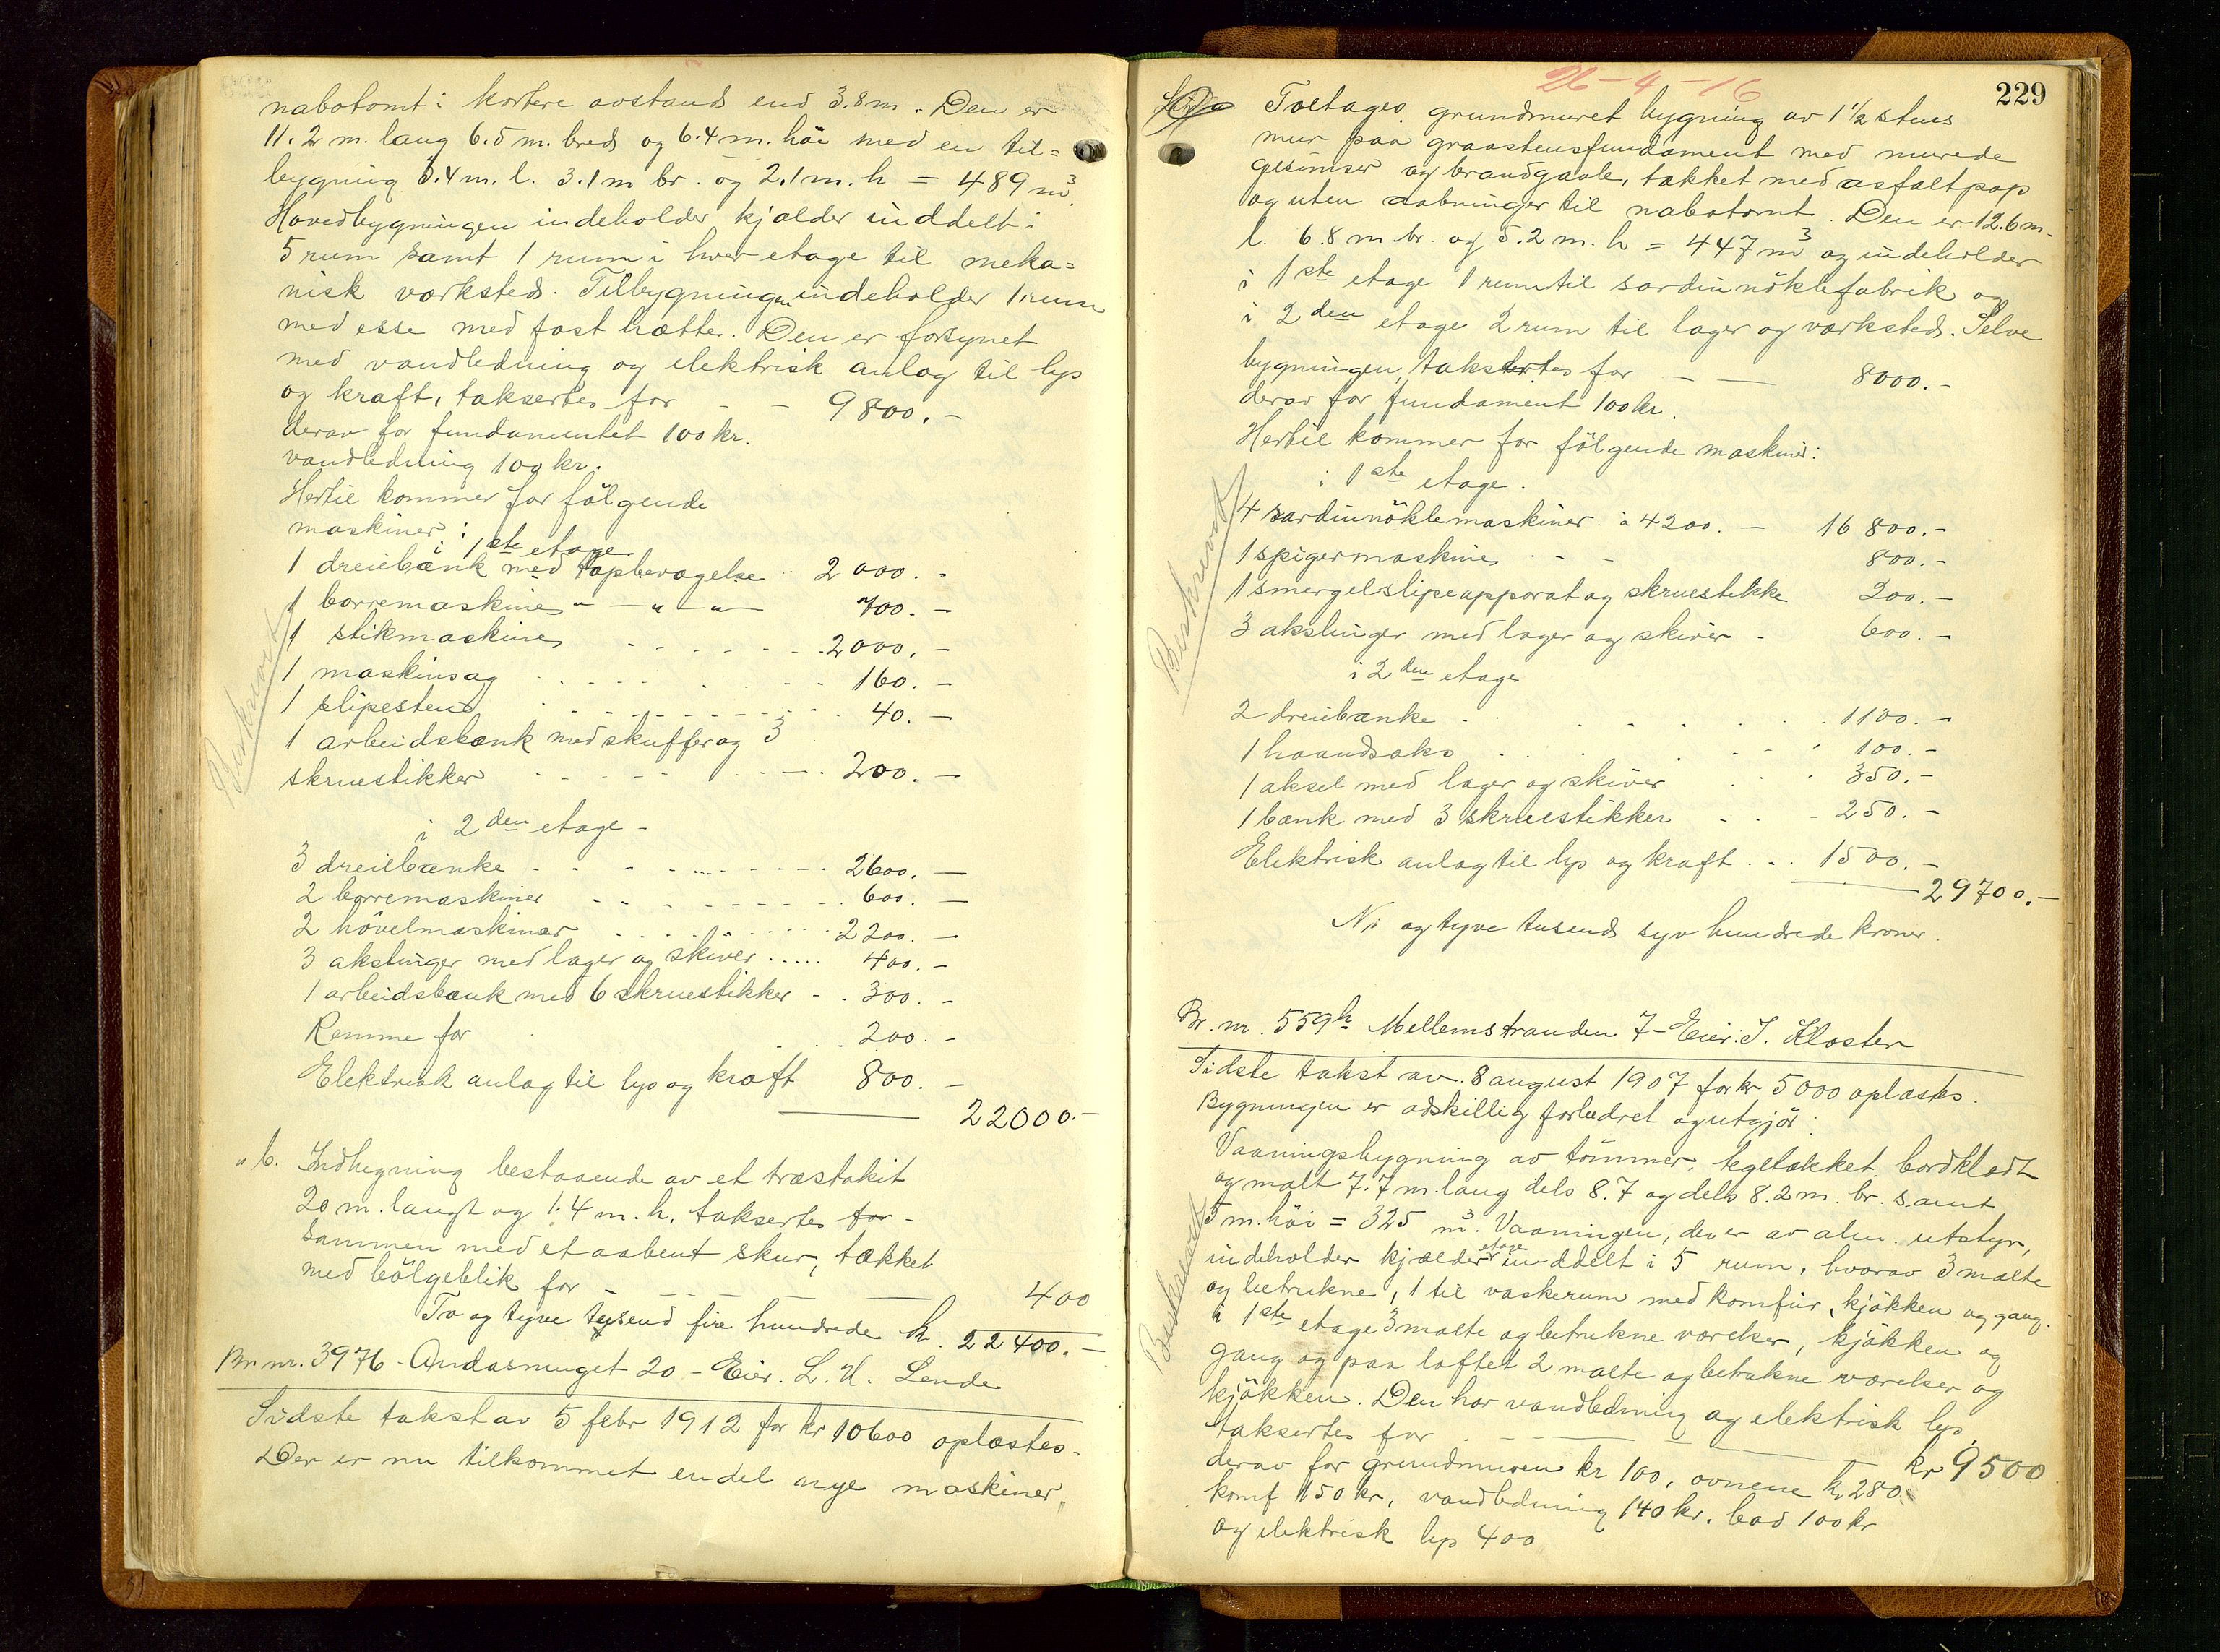 nabotomt i kortere avstand end 3.8 m. Den er
11.2 m. lang 6.5 m. bred og 6.4 m. höi med en til=
bygning 5.4 m. l. 3.1 m br. og 2.1 m. h = 489 m³.
Hovedbygningen indeholder kjælder inddelt i
5 rum samt 1 rum i hver etage til meka=
nisk værksted. Tilbygningen indeholder 1 rum
med esse med fast hætte. Den er forsynet
med vandledning og elektrisk anlæg til lys
og kraft, taksertes for - - 9800.-
derav for fundamentet 100 kr.
vandledning 100 kr.
Hertil kommer for fölgende
maskiner:
i 1ste etage
1 dreiebænk med tapbevægelse 2000.-
1 borremaskine " — " — " — 700.-
1 stikmaskine 2000.-
1 maskinsag 160.-
1 slipesten 40.-
1 arbeidsbænk med skuffer og 3
skruestikker 200.-
Beskrevet
i 2den etage -
3 dreiebænke 2600.-
2 borremaskiner 600.-
2 hövelmaskiner 2200.-
3 akslinger med lager og skiver 400.-
1 arbeidsbænk med 6 skruestikker 300.-
Remme for 200.-
Elektrisk anlæg til lys og kraft 800.-
22000.-
" b. Indhegning bestaaende av et træstakit
20 m. langt og 1.4 m. h. taksertes for -
sammen med et aabent skur, tækket
med bölgeblik for - - - 400
To og tyve tusend fire hundrede kr. 22400.-
Br. nr. 3976 - Andasmuget 20 - Eier. L. H. Lende
Sidste takst av 5 febr 1912 for kr 10600 oplæstes.
Der er nu tilkommet en del nye maskiner,
26-4-16
229
Toetages grundmuret bygning av 1½ stens
mur paa graastensfundament med murede
gesimser og brandgavle, tækket med asfaltpap
og uten aabninger til nabotomt. Den er 12.6 m.
l. 6.8 m br. og 5.2 m. h = 447 m³ og indeholder
i 1ste etage 1 rum til sardinnöklefabrik og
i 2den etage 2 rum til lager og værksted. Selve
bygningen, taksertes for - — 8000.-
derav for fundament 100 kr.
Hertil kommer for fölgende maskiner:
i 1ste etage.
4 sardinnöklemaskiner à 4200.- 16 800.-
1 spigermaskine 800.-
1 smergelslipeapparat og skruestikke 200.-
3 akslinger med lager og skiver - 600.-
Beskrevet
i 2den etage
2 dreiebænke 1100.-
1 haandsaks 100.-
1 aksel med lager og skiver 350.-
1 bænk med 3 skruestikker 250.-
Elektrisk anlæg til lys og kraft 1500.-
29700.-
Ni og tyve tusend syv hundrede kroner.
Br. nr. 559h Mellemstranden 7 - Eier: J. Kloster
Sidste takst av 8 august 1907 for kr 5000 oplæstes.
Bygningen er adskillig forbedret og utgjör:
Vaaningsbygning av tömmer, tegltækket, bordklædt
og malt 7.7 m. lang dels 8.7 og dels 8.2 m. br. samt
5 m. höi = 325 m³. Vaaningen, der er av alm. utstyr,
indeholder kjælderetage inddelt i 5 rum, hvorav 3 malte
og betrukne, 1 til vaskerum med komfür, kjökken og gang.
i 1ste etage 3 malte og betrukne værelser, kjökken og
gang og paa loftet 2 malte og betrukne værelser og
kjökken. Den har vandledning og elektrisk lys,
taksertes for - - - kr 9500
derav for grundmuren kr 100, ovnene kr 280
komf 150 kr, vandledning 140 kr. bad 100 kr
og elektrisk lys 400
Beskrevet